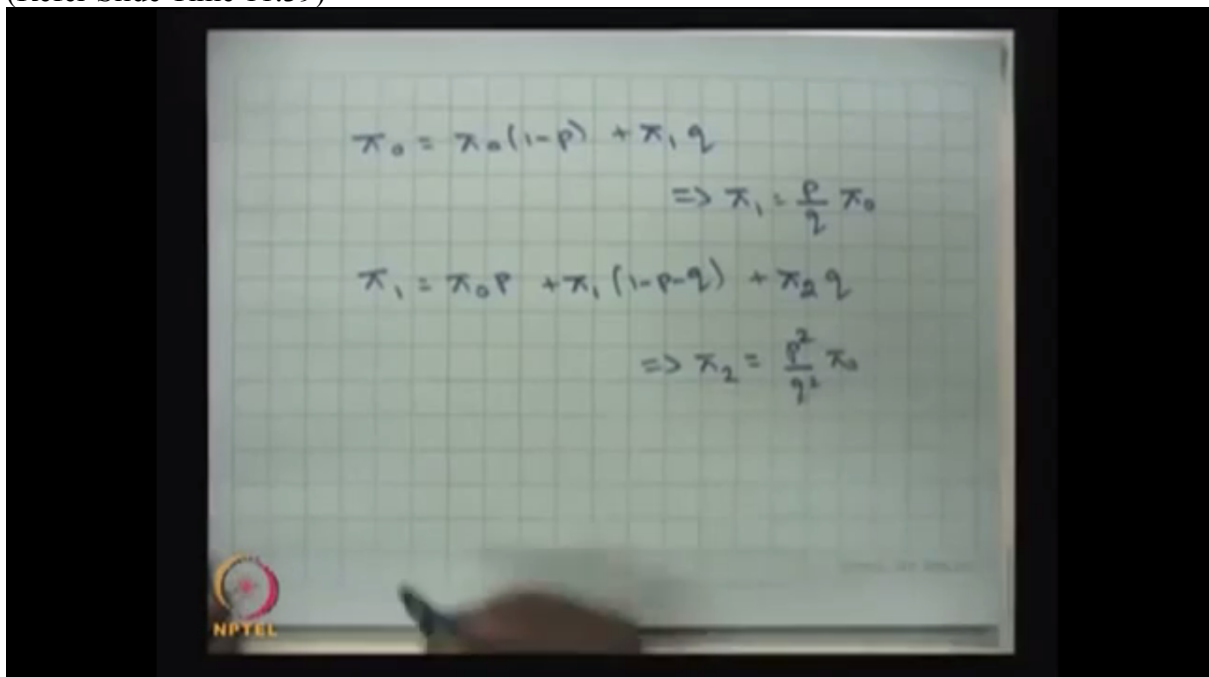 π₀ = π₀(1-p) + π₁ q
=> π₁ = p/q π₀
π₁ = π₀p + π₁(1-p-q) + π₂ q
=> π₂ = p²/q² π₀
NPTEL